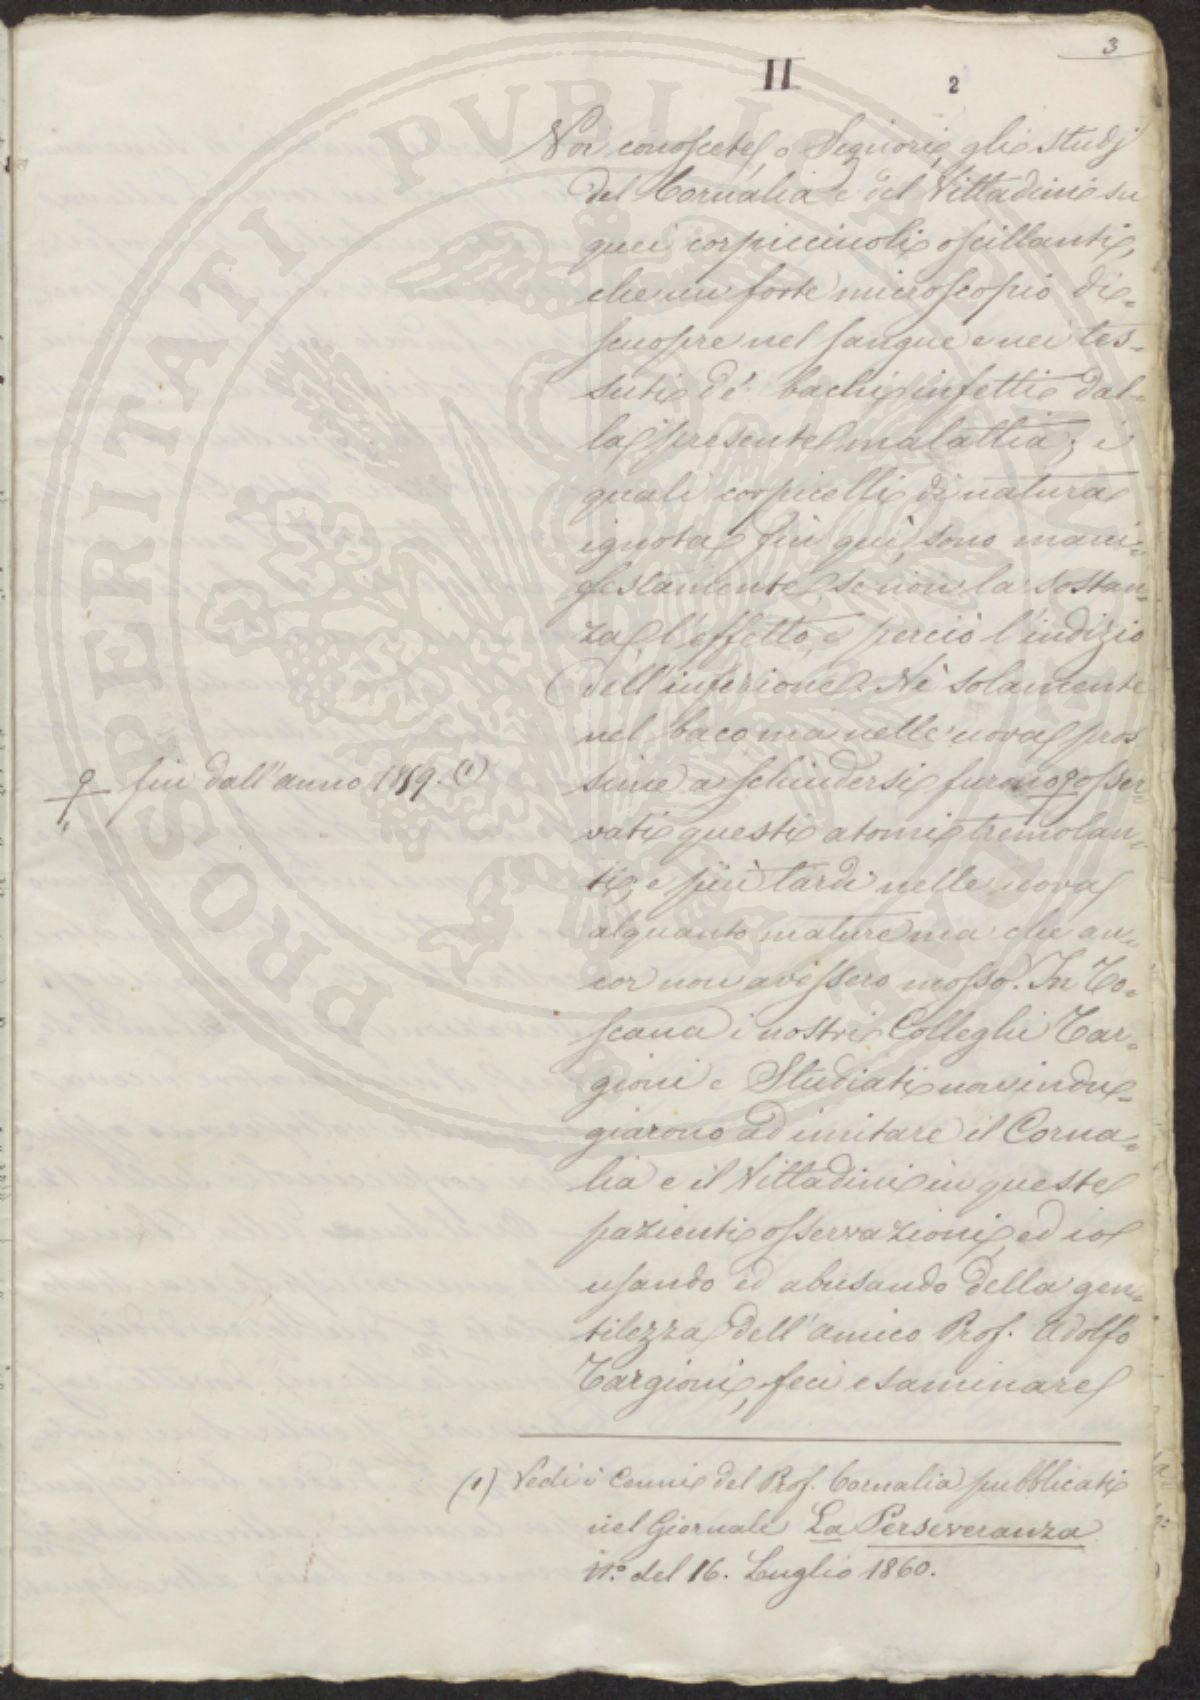 3
II
2
Voi conoscete, o Signori, gli studj
del Cornalia e del Vittadini su
quei corpicciuoli oscillanti,
che un forte microscopio di=
scuopre nel sangue e nei tes=
suti de' bachi infetti dal=
la presente malattia; i
quali corpicelli di natura
ignota fin quì, sono mani=
festamente, se non la sostan=
za, l'effetto, e perciò l'indizio
dell'infezione. Nè solamente
nel baco ma nelle uova pros
sime a schiudersi furono osser=
fin dall'anno 1859. (1)
vati questi atomi tremolan=
ti; e più tardi nelle uova
alquanto mature ma che an=
cor non avessero mosso. In To=
scana i nostri Colleghi Tar=
gioni e Studiati non indu=
giarono ad imitare il Corna=
lia e il Vittadini in queste
pazienti osservazioni, ed io
usando ed abusando della gen=
tilezza dell'amico Prof. Adolfo
Targioni, feci esaminare
(1) Vedi i Cenni del Prof. Cornalia pubblicati
nel Giornale La Perseveranza
n.° del 16. Luglio 1860.
PROSPERITATI PUBLICAE